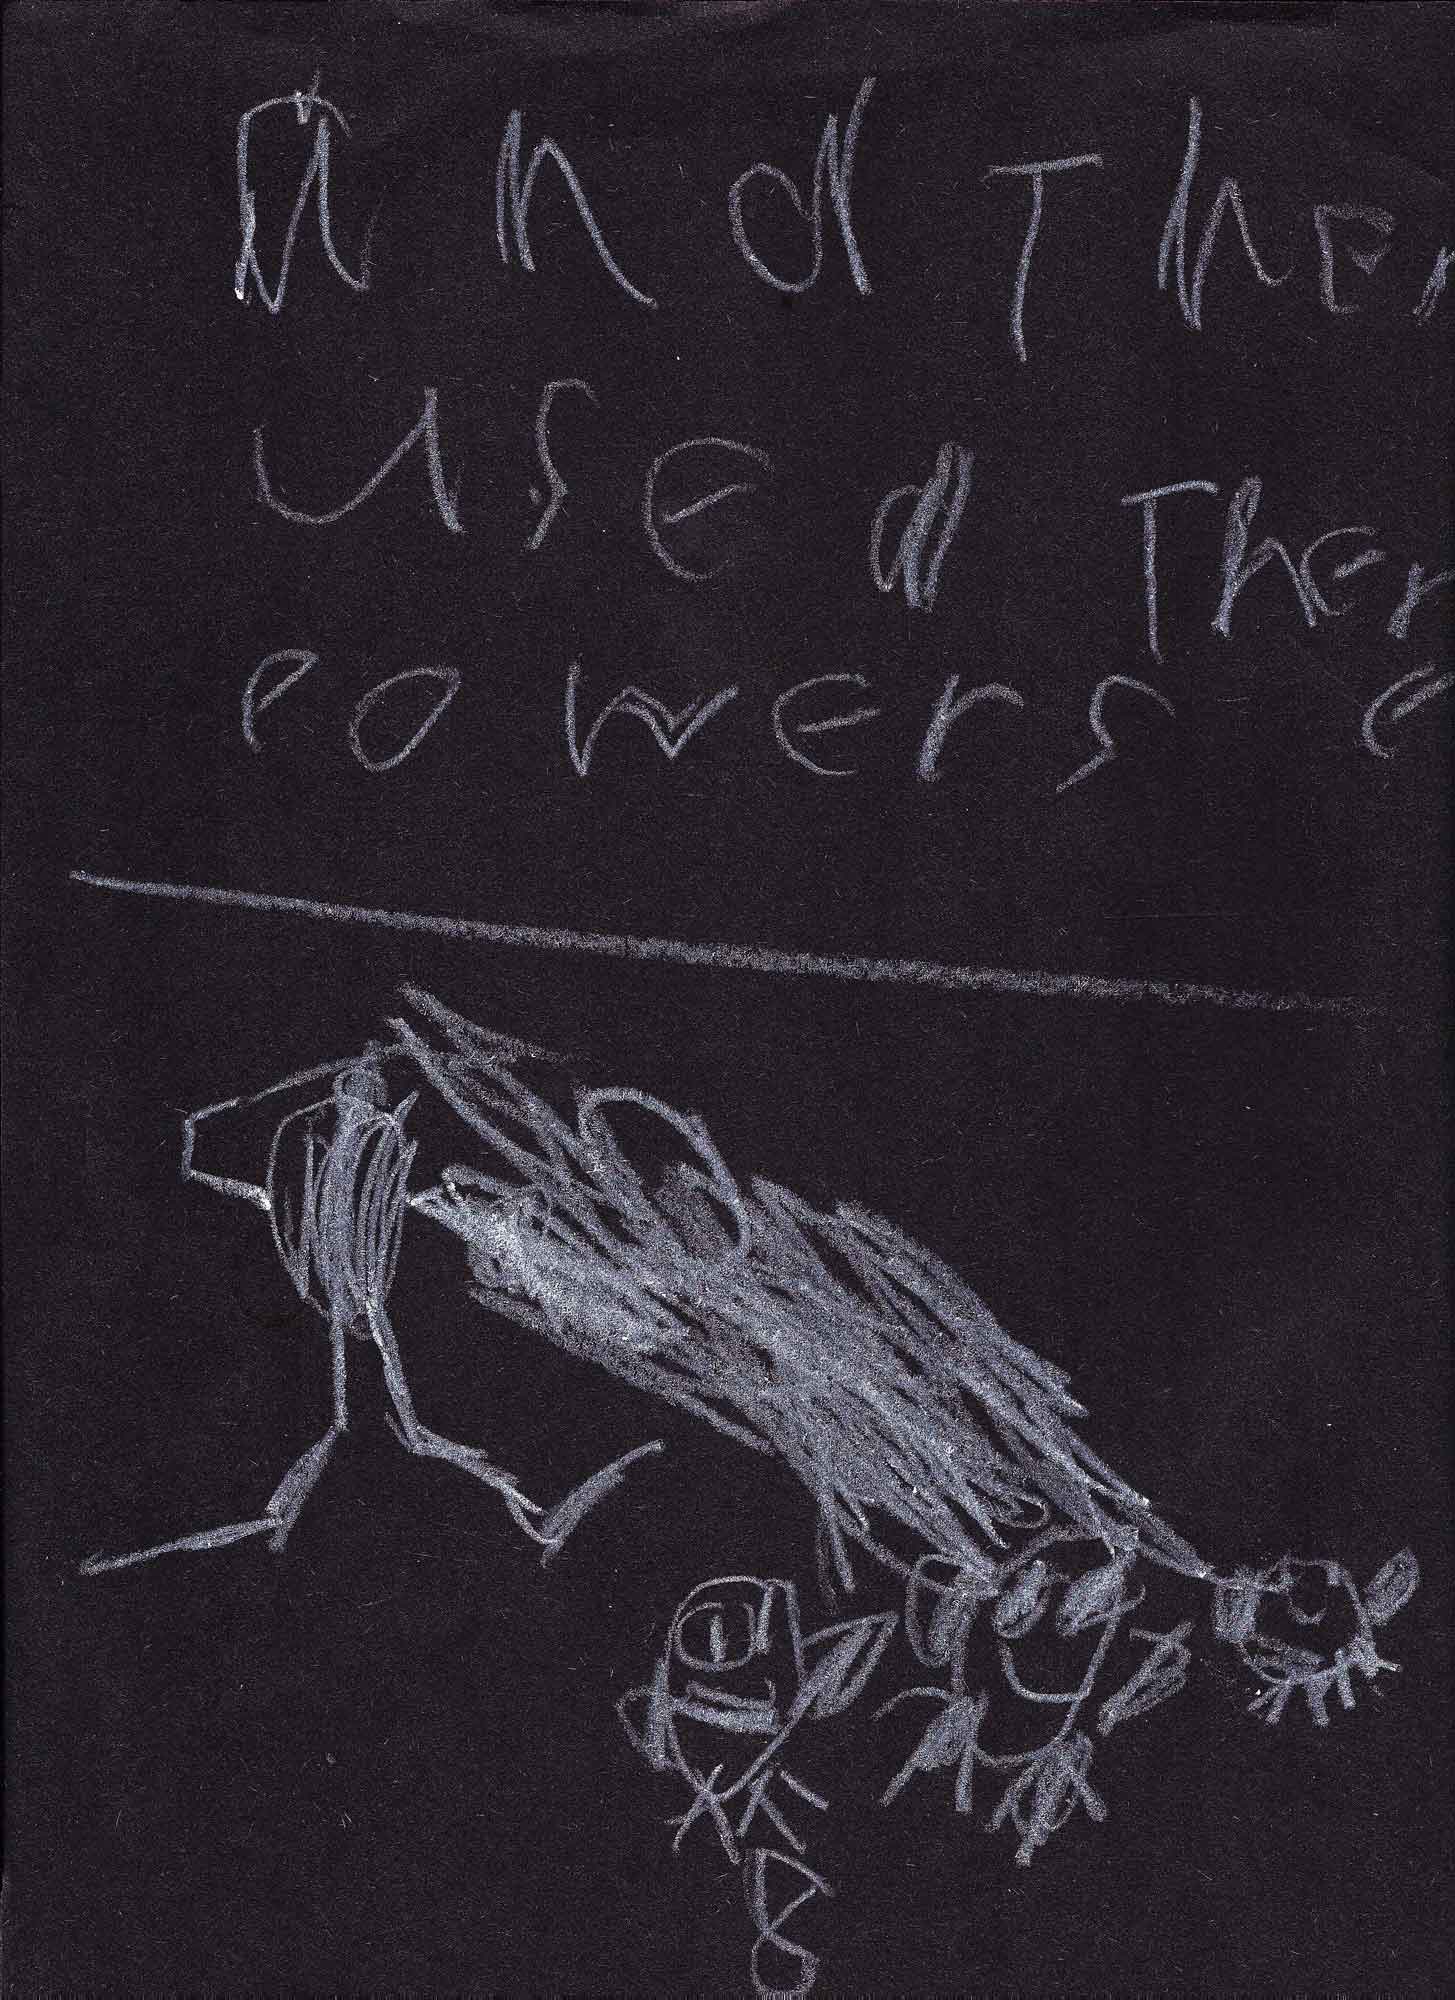 and Then
used Ther
Powers e
8